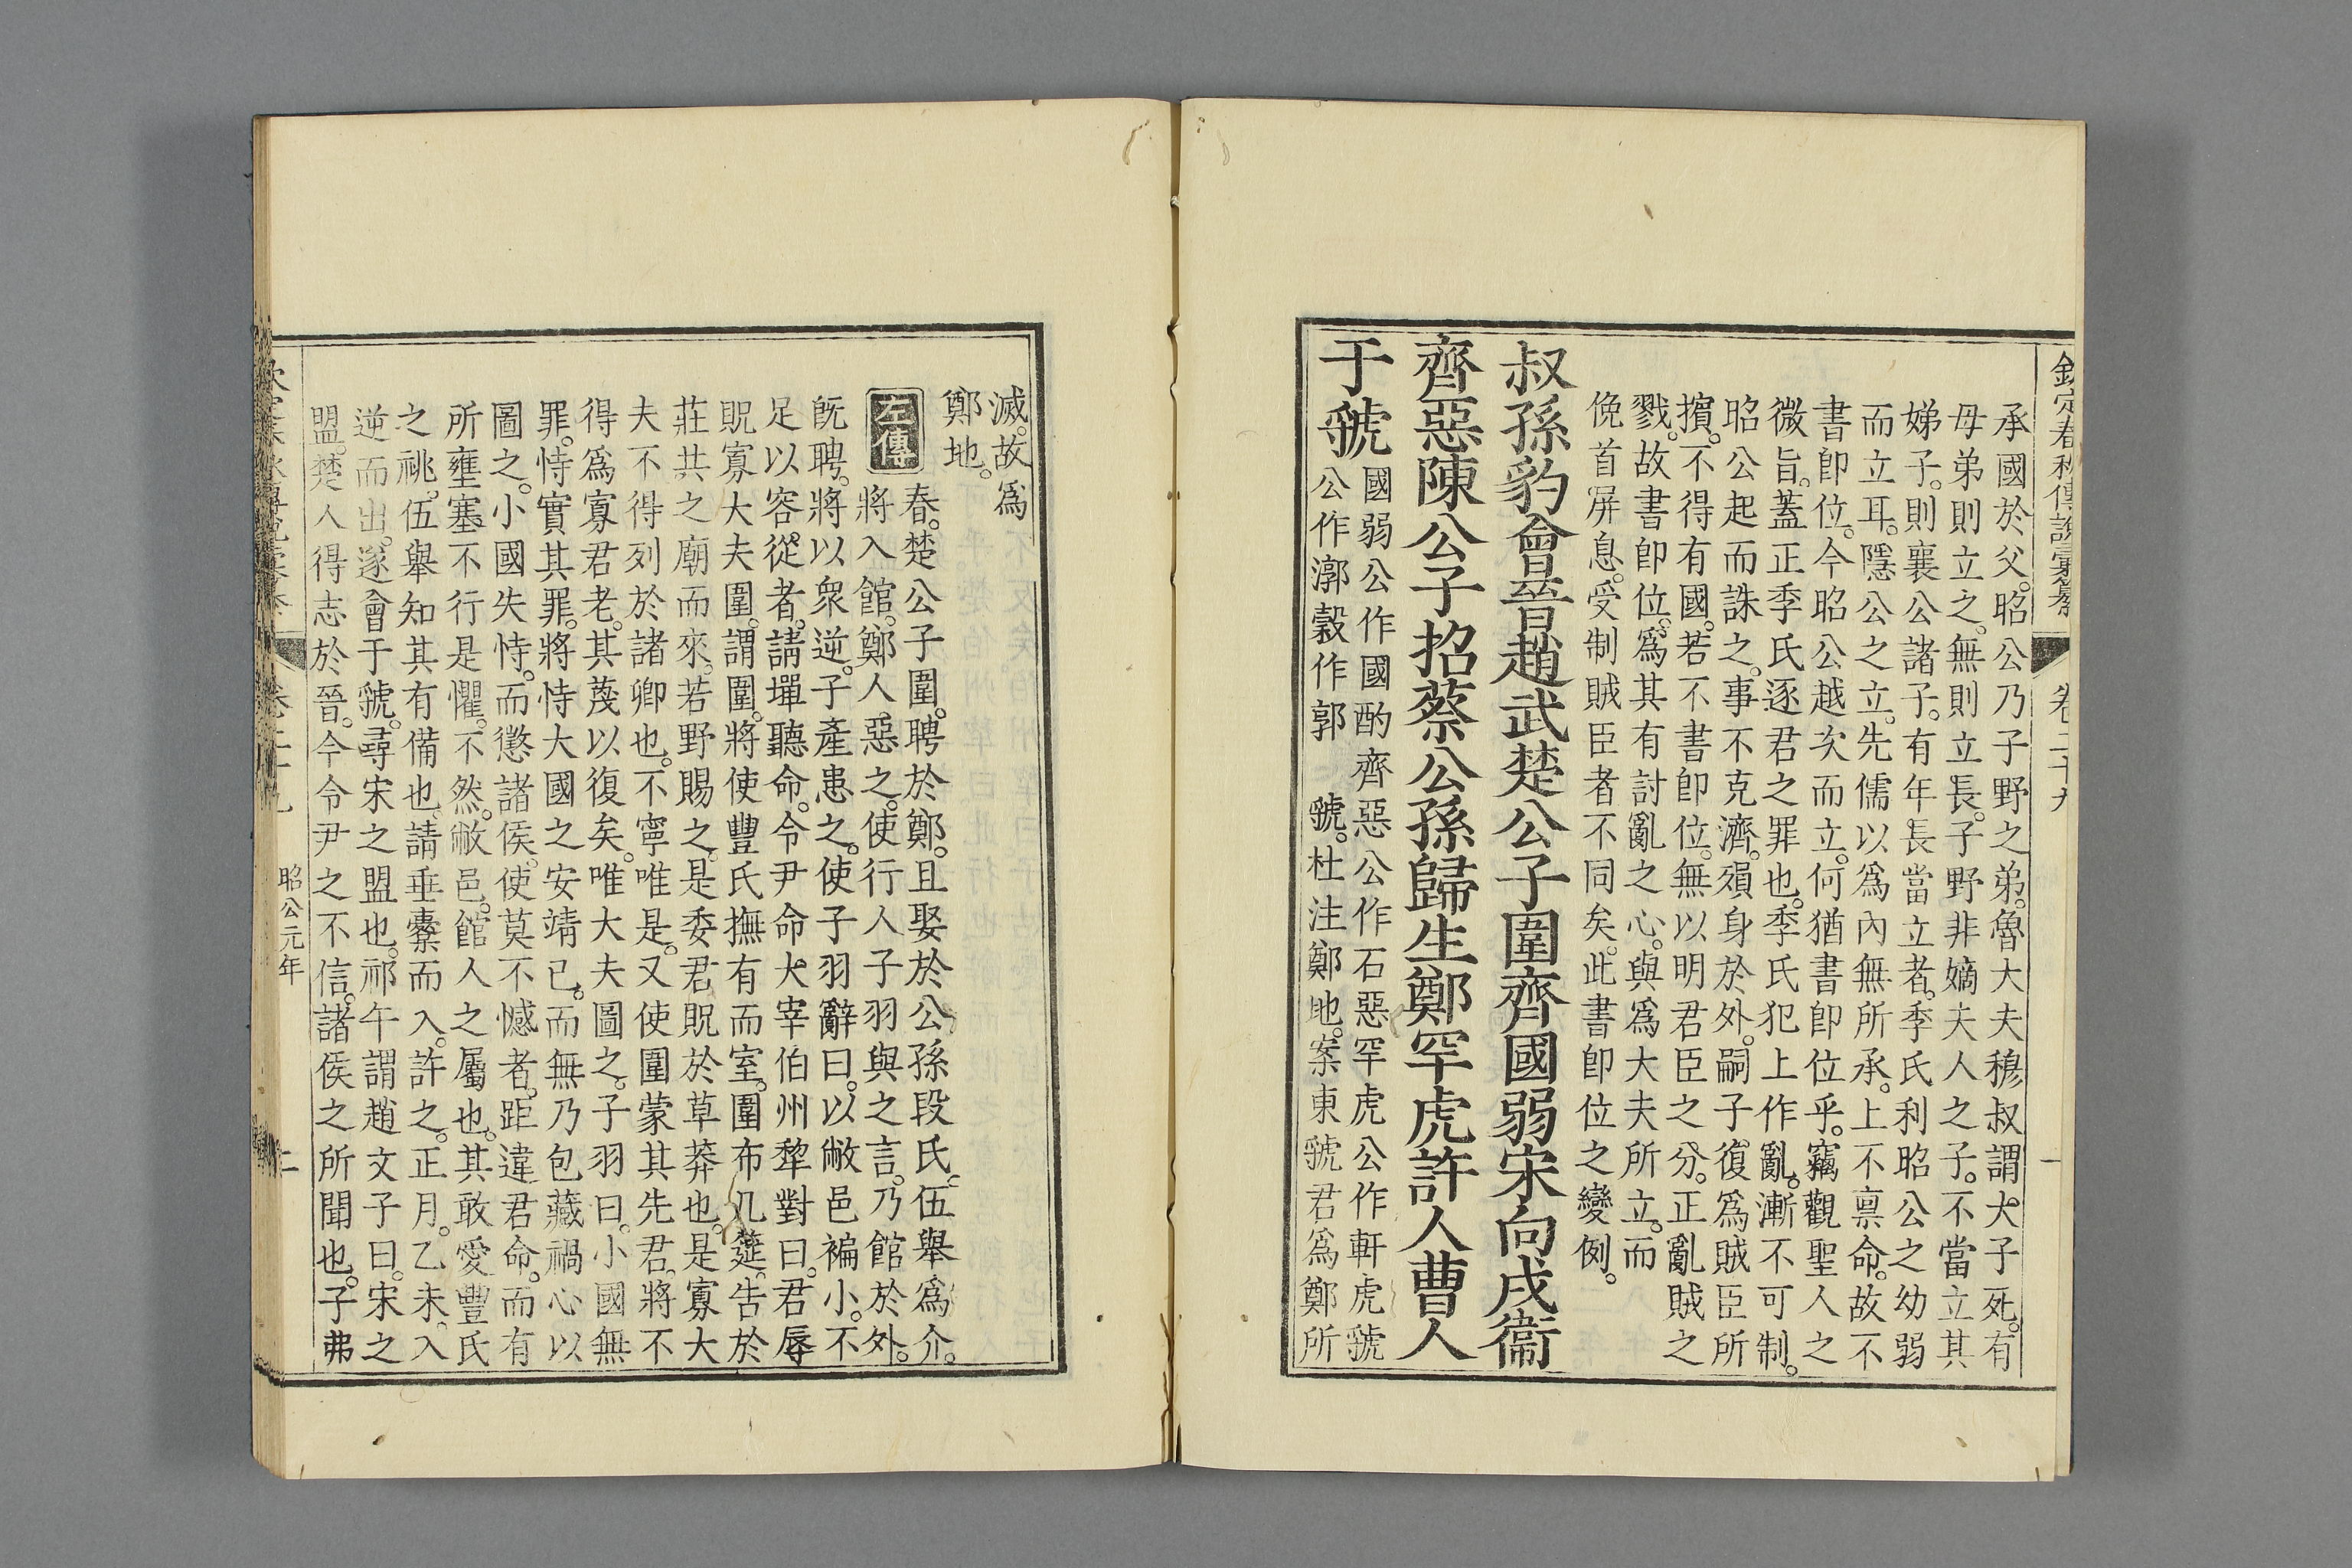 欽定春秋傳說彙纂 卷三十九 一
承國於父。昭公乃子野之弟。魯大夫穆叔謂。大子死。有
母弟則立之。無則立長。子野非嫡夫人之子。不當立其
娣子。則襄公諸子。有年長當立者。季氏利昭公之幼弱
而立耳。隱公之立。先儒以爲內無所承。上不禀命。故不
書卽位。今昭公越次而立。何猶書卽位乎。竊觀聖人之
微旨。蓋正季氏逐君之罪也。季氏犯上作亂。漸不可制。
昭公起而誅之。事不克濟。殞身於外。嗣子。復爲賊臣所
擯。不得有國。若不書卽位。無以明君臣之分。正亂賊之
戮。故書卽位。爲其有討亂之心。與爲大夫所立。而
俛首屏息。受制賊臣者不同矣。此書卽位之變例。
叔孫豹會晉趙武楚公子圍齊國弱宋向戌衞
齊惡陳公子招蔡公孫歸生鄭罕虎許人曹人
于虢
國弱公作國酌齊惡公作石惡罕虎公作軒虎虢
公作漷穀作郭 虢。杜注鄭地。案東虢君爲鄭所
滅。故爲
鄭地。
左傳
春。楚公子圍。聘於鄭。且娶於公孫段氏。伍舉爲介。
將入館。鄭人惡之。使行人子羽與之言。乃館於外。
旣聘。將以衆逆。子產患之。使子羽辭曰。以敝邑褊小。不
足以容從者。請墠聽命。令尹命大宰伯州犂對曰。君辱
貺寡大夫圍。謂圍。將使豐氏撫有而室。圍布几筵。告於
莊共之廟而來。若野賜之。是委君貺於草莽也。是寡大
夫不得列於諸卿也。不寧唯是。又使圍蒙其先君。將不
得爲寡君老。其蔑以復矣。唯大夫圖之。子羽曰。小國無
罪。恃實其罪。將恃大國之安靖已。而無乃包藏禍心以
圖之。小國失恃。而懲諸侯。使莫不憾者。距違君命。而有
所壅塞不行是懼。不然。敝邑。館人之屬也。其敢愛豐氏
之祧。伍舉知其有備也。請垂櫜而入。許之。正月。乙未。入
逆而出。遂會于虢。尋宋之盟也。祁午謂趙文子曰。宋之
盟。楚人得志於晉。今令尹之不信。諸侯之所聞也。子弗
昭公元年 二